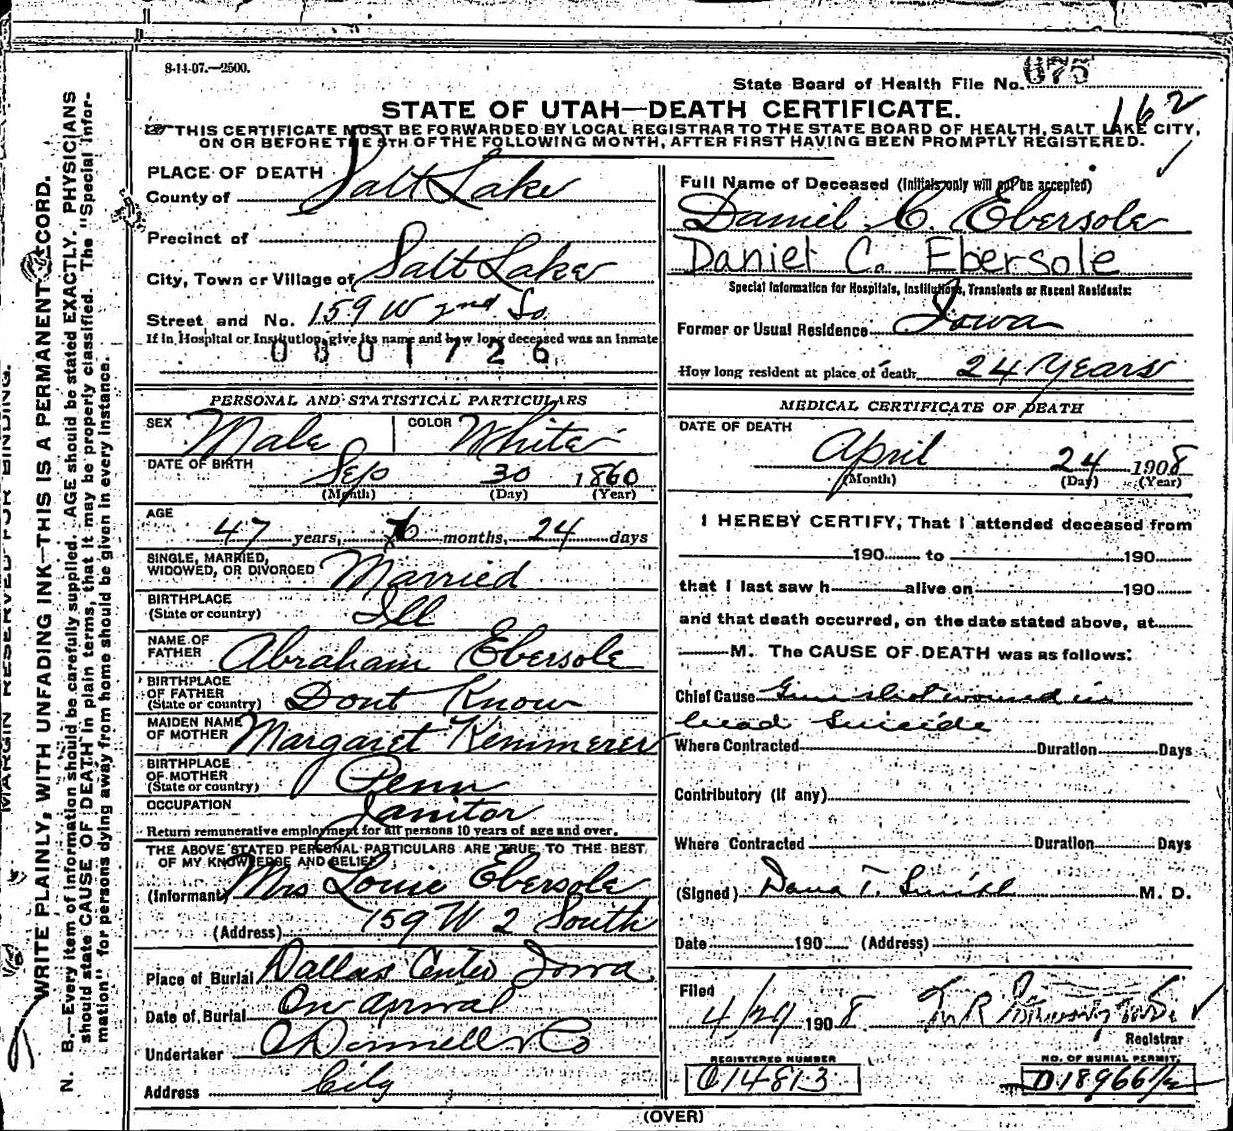 8-14-07.—2500.
State Board of Health File No. 675
STATE OF UTAH—DEATH CERTIFICATE.
162
THIS CERTIFICATE MUST BE FORWARDED BY LOCAL REGISTRAR TO THE STATE BOARD OF HEALTH, SALT LAKE CITY,
ON OR BEFORE THE 5TH OF THE FOLLOWING MONTH, AFTER FIRST HAVING BEEN PROMPTLY REGISTERED.
PLACE OF DEATH
County of Salt Lake
Precinct of
City, Town or Village of Salt Lake
Street and No. 159 W 2nd So
If in Hospital or Institution, give its name and how long deceased was an inmate
0001726
PERSONAL AND STATISTICAL PARTICULARS
SEX Male COLOR White
DATE OF BIRTH Sep 30 1860
(Month) (Day) (Year)
AGE
47 years, 6 months, 24 days
SINGLE, MARRIED,
WIDOWED, OR DIVORCED Married
BIRTHPLACE
(State or country) Ill
NAME OF
FATHER Abraham Ebersole
BIRTHPLACE
OF FATHER
(State or country) Dont Know
MAIDEN NAME
OF MOTHER Margaret Kemmerer
BIRTHPLACE
OF MOTHER
(State or country) Penn
OCCUPATION Janitor
Return remunerative employment for all persons 10 years of age and over.
THE ABOVE STATED PERSONAL PARTICULARS ARE TRUE TO THE BEST
OF MY KNOWLEDGE AND BELIEF
(Informant) Mrs Louie Ebersole
(Address) 159 W 2 South
Place of Burial Dallas Center Iowa
Date of Burial On arrival
Undertaker O'Donnell & Co
Address City
Full Name of Deceased (Initials only will not be accepted)
Daniel C. Ebersole
Daniel C. Ebersole
Special Information for Hospitals, Institutions, Transients or Recent Residents:
Former or Usual Residence Iowa
How long resident at place of death 24 Years
MEDICAL CERTIFICATE OF DEATH
DATE OF DEATH
April 24 1908
(Month) (Day) (Year)
I HEREBY CERTIFY, That I attended deceased from
190 to 190
that I last saw h alive on 190
and that death occurred, on the date stated above, at
M. The CAUSE OF DEATH was as follows:
Chief Cause Gun shot wound in
head Suicide
Where Contracted Duration Days
Contributory (if any)
Where Contracted Duration Days
(Signed) Dana T. Smith M. D.
Date 190 (Address)
Filed
4/29 1908
Registrar
REGISTERED NUMBER
014813
NO. OF BURIAL PERMIT,
D18966 1/2
(OVER)
MARGIN RESERVED FOR BINDING.
WRITE PLAINLY, WITH UNFADING INK—THIS IS A PERMANENT RECORD.
N. B.—Every item of information should be carefully supplied. AGE should be stated EXACTLY. PHYSICIANS
should state CAUSE OF DEATH in plain terms, that it may be properly classified. The "Special Infor-
mation" for persons dying away from home should be given in every instance.